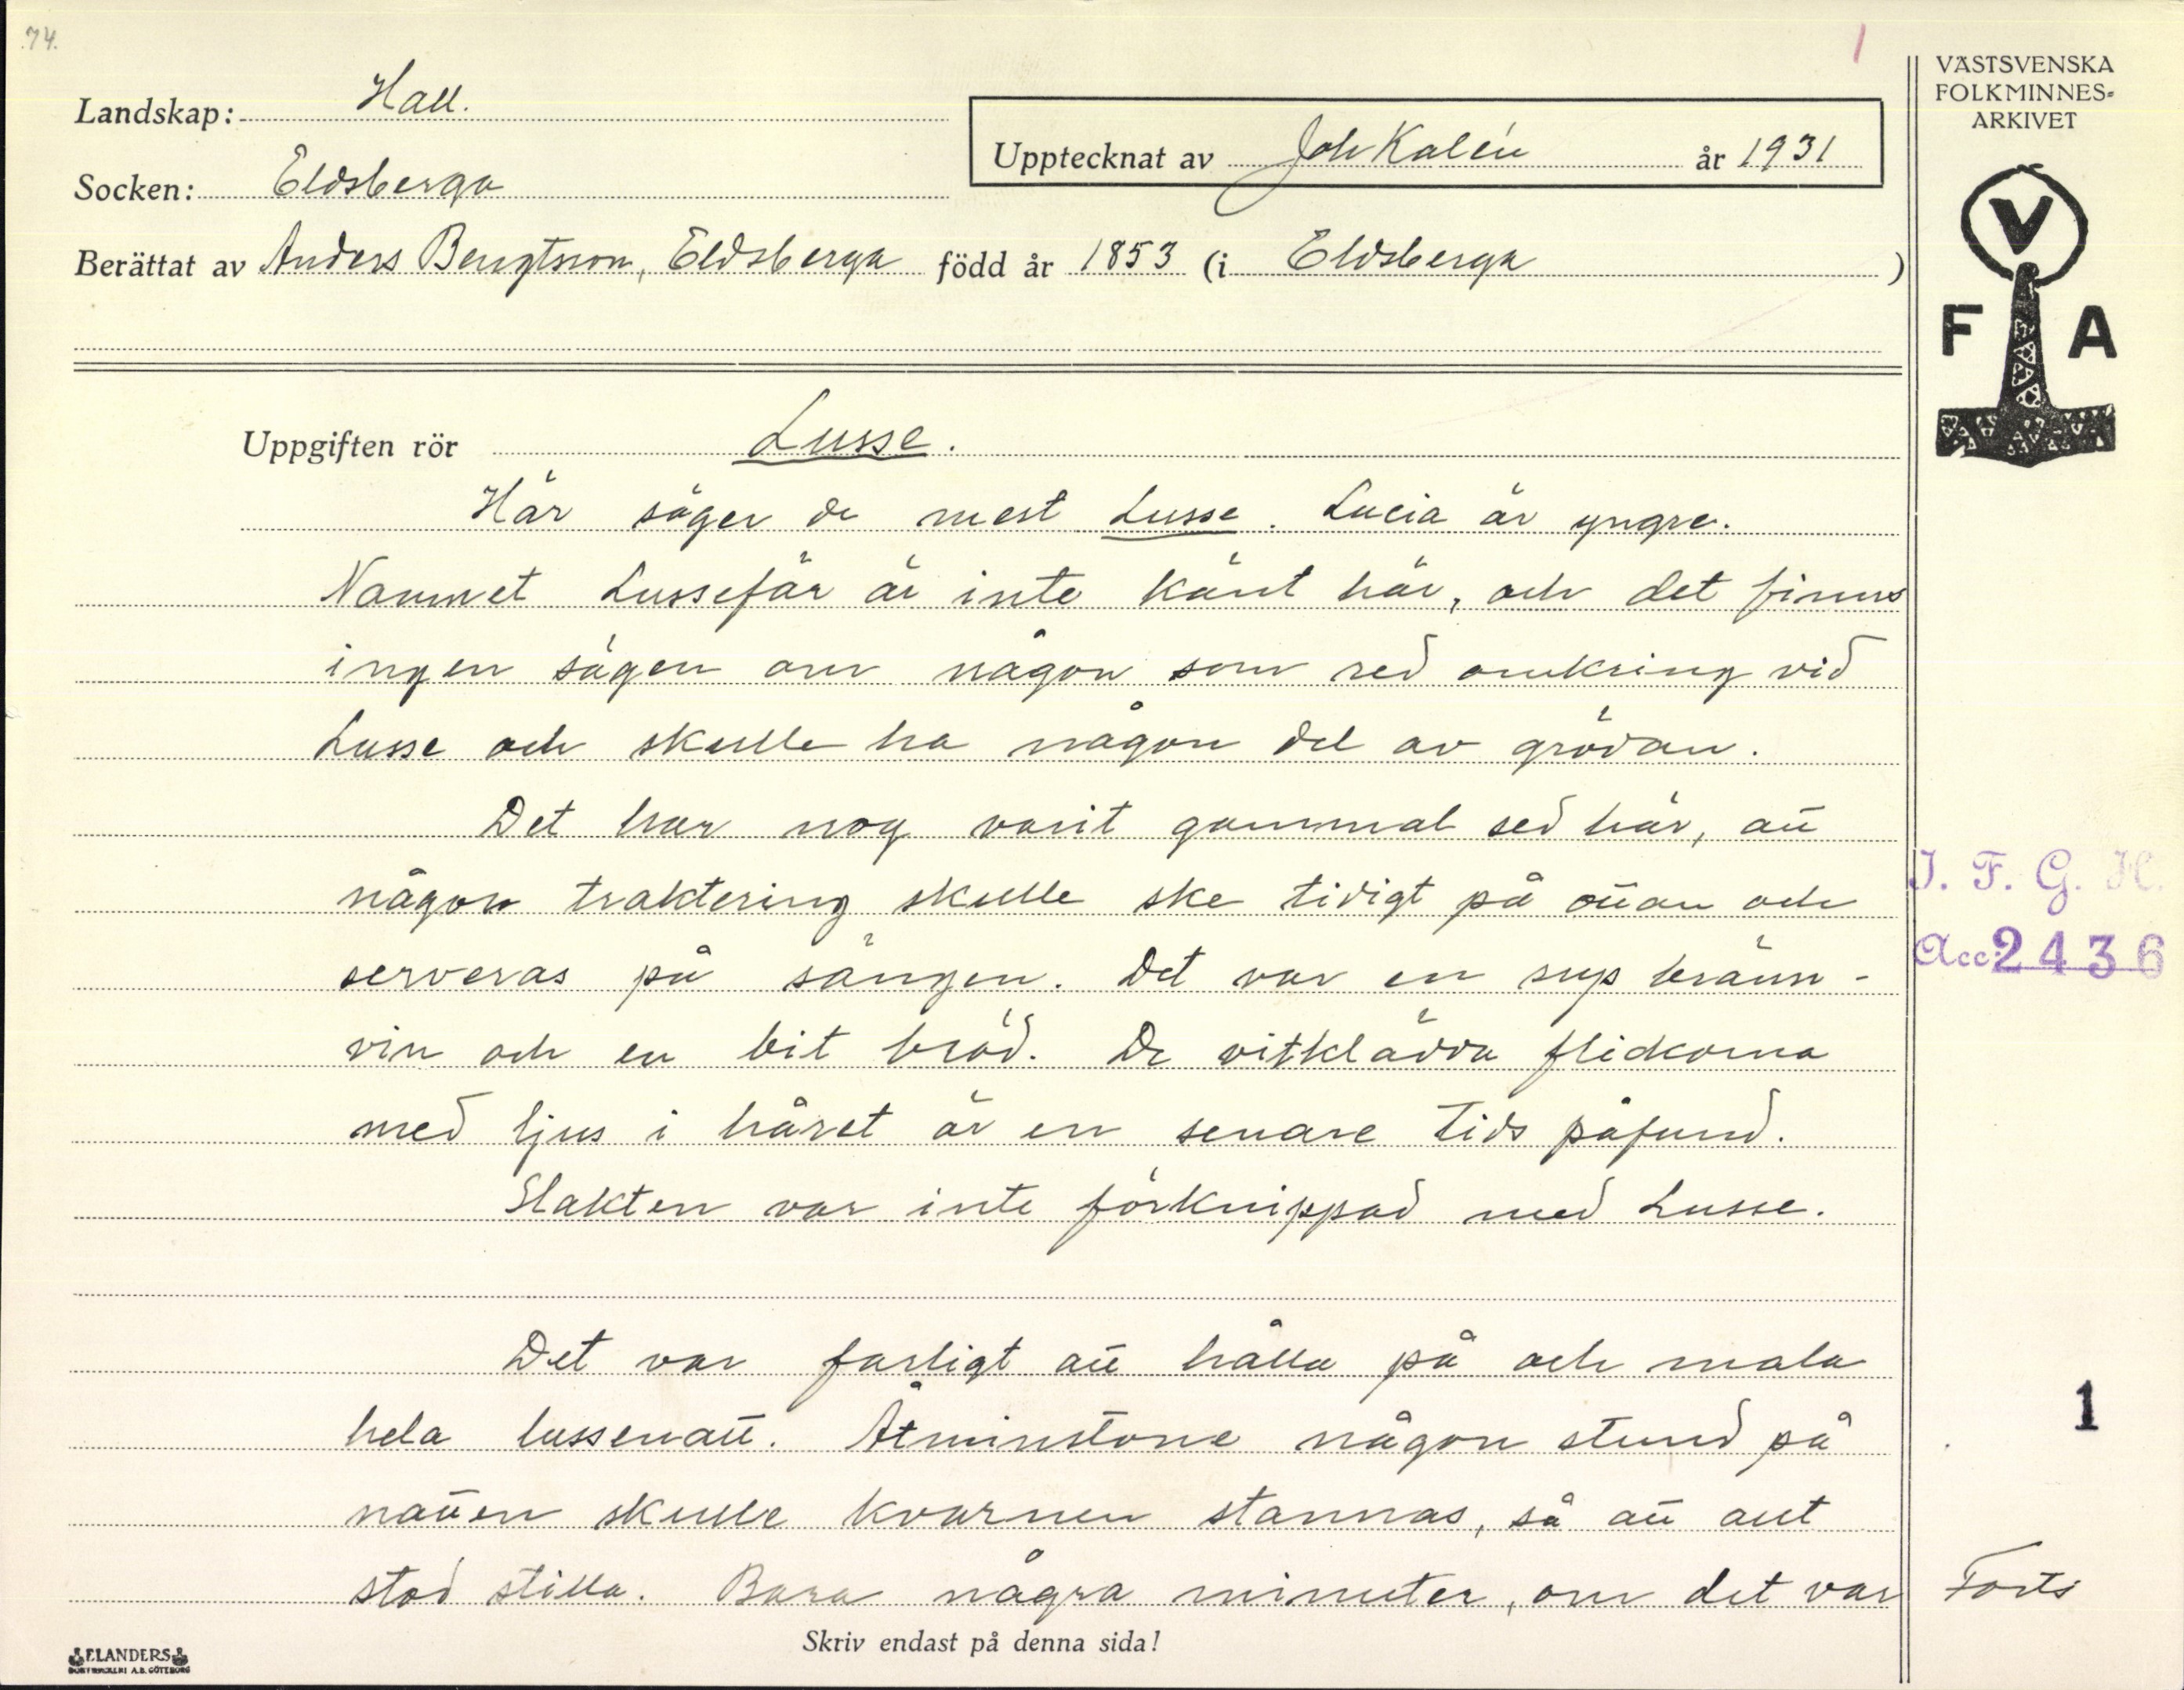 74.
1
Landskap: Hall.
Socken: Eldsberga
Upptecknat av Joh Kalén år 1931
Berättat av Anders Bengtsson, Eldsberga född år 1853 (i Eldsberga)
VÄSTSVENSKA
FOLKMINNES-
ARKIVET
V
F A
Uppgiften rör Lusse.
Här säger de mest Lusse. Lucia är yngre.
Namnet Lussefär är inte känt här, och det finns
ingen sägen om någon som red omkring vid
Lusse och skulle ha någon del av grödan.
Det har nog varit gammal sed här, att
någon traktering skulle ske tidigt på ottan och
serveras på sängen. Det var en sup bränn-
vin och en bit bröd. De vitklädda flickorna
med ljus i håret är en senare tids påfund.
Slakten var inte förknippad med Lusse.
Det var farligt att hålla på och mala
hela lussenatt. Åtminstone någon stund på
natten skulle kvarnen stannas, så att allt
stod stilla. Bara några minuter, om det var
I. F. G. H.
Acc. 2436
1
Forts
Skriv endast på denna sida!
ELANDERS
BOKTRYCKERI A.B. GÖTEBORG